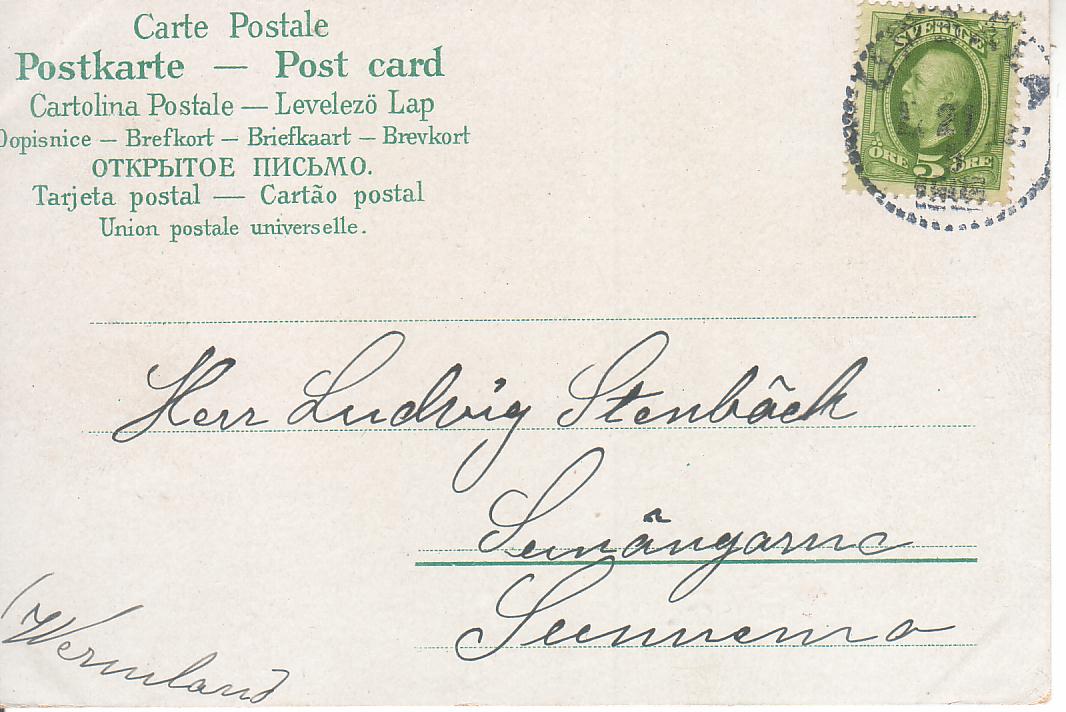 Carte Postale
Postkarte — Post card
Cartolina Postale — Levelezö Lap
Dopisnice — Brefkort — Briefkaart — Brevkort
ОТКРЫТОЕ ПИСЬМО.
Tarjeta postal — Cartão postal
Union postale universelle.
SVERIGE
ÖRE 5 ÖRE
21
Herr Ludvig Stenbäck
Sunnemo
(Wermland)